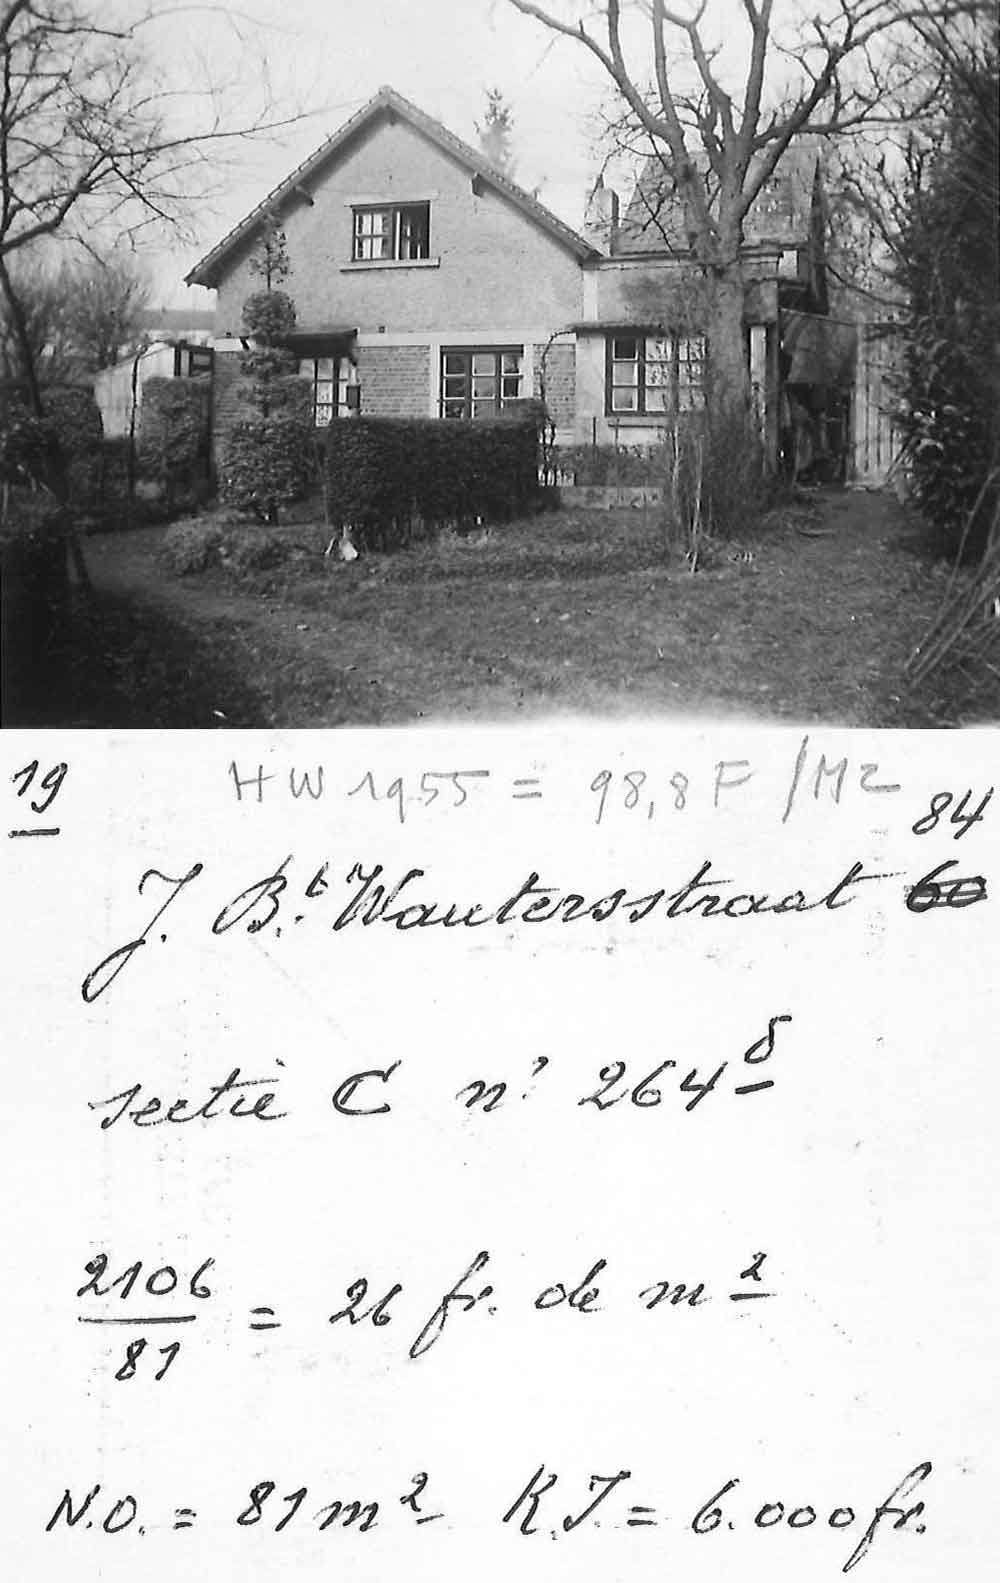 19
HW 1955 = 98,8 F /M2
84
J. Bt. Wautersstraat 60
sectie C n° 264 δ
2106/81 = 26 fr. de m²
N.O. = 81 m² K.I. = 6.000 fr.